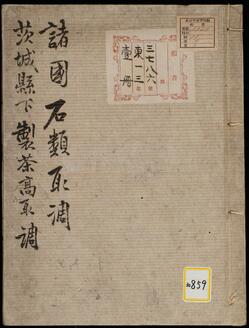 諸國石類取調
茨城縣下製茶高取調
三七八六
東一三
壹冊
859